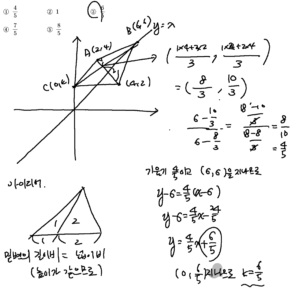 ① 4/5 ② 1 ③ 6/5
④ 7/5 ⑤ 8/5
B(6,6)
y=x
A(2,4)
C(0,2)
(4,2)
( (1×4+2×2)/3 , (1×2+2×4)/3 )
= ( 8/3 , 10/3 )
(6-10/3)/(6-8/3) = = 8/10
= 4/5
아이디어.
1 2
1 2
밑변의 길이비 = 넓이비
(높이가 같으므로)
기울기 이고 (6,6)을 지나므로
y-6=4/5(x-6)
y-6=4/5x-24/5
y=4/5x+6/5
(0, 6/5)지나므로 k=6/5